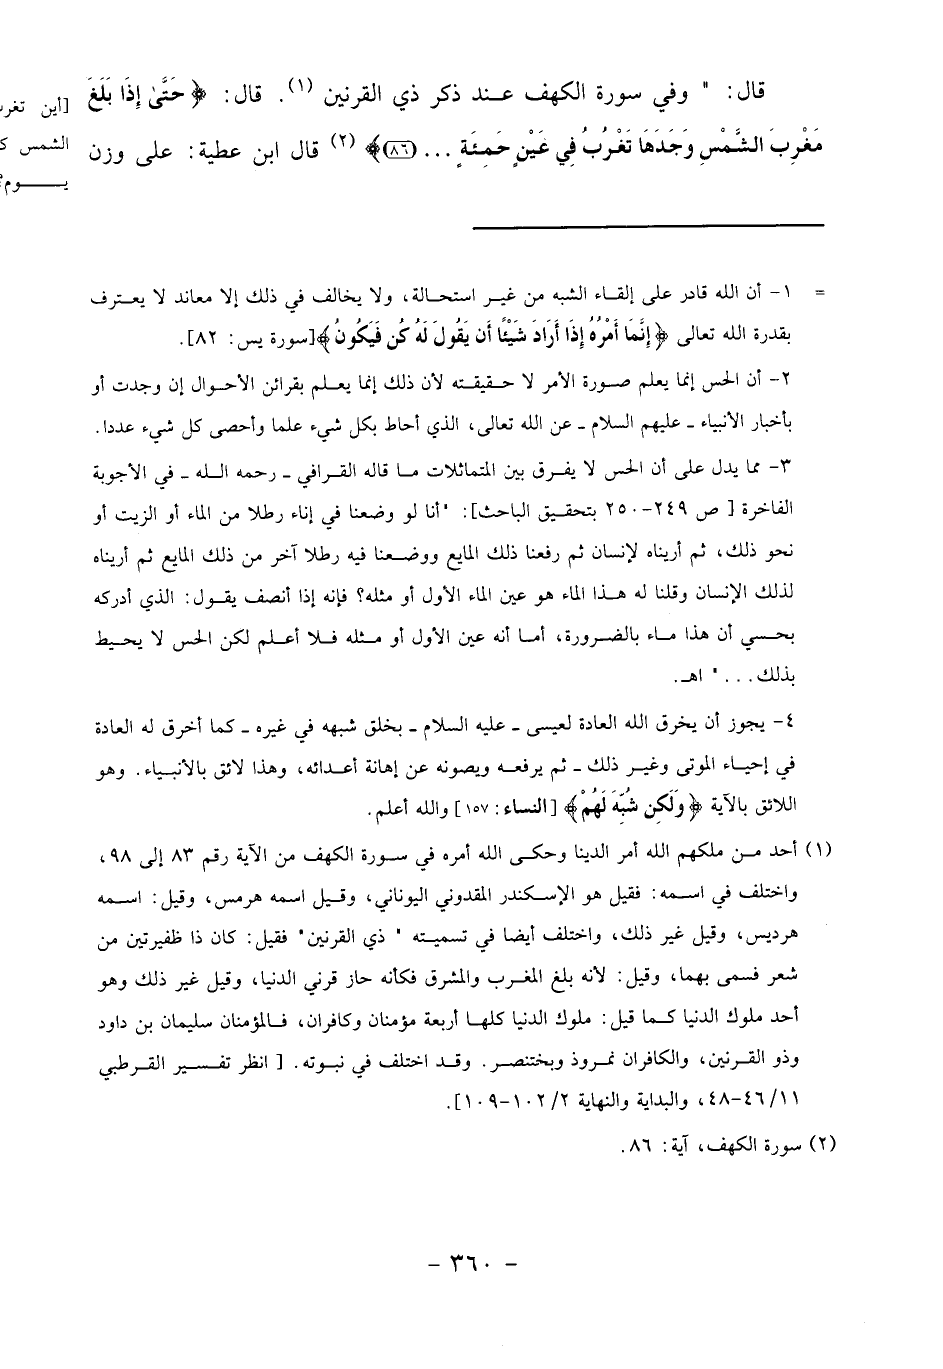 قال: " وفي سورة الكهف عند ذكر ذي القرنين (١). قال: ﴿ حَتَّىٰ إِذَا بَلَغَ
مَغْرِبَ الشَّمْسِ وَجَدَهَا تَغْرُبُ فِي عَيْنٍ حَمِئَةٍ ... (٨٦)﴾ (٢) قال ابن عطية: على وزن
[أين تغرب
الشمس
يــوم؟
= ١- أن الله قادر على إلقاء الشبه من غير استحالة، ولا يخالف في ذلك إلا معاند لا يعترف
بقدرة الله تعالى ﴿ إِنَّمَا أَمْرُهُ إِذَا أَرَادَ شَيْئًا أَن يَقُولَ لَهُ كُن فَيَكُونُ ﴾[سورة يس: ٨٢].
٢- أن الحس إنما يعلم صورة الأمر لا حقيقته لأن ذلك إنما يعلم بقرائن الأحوال إن وجدت أو
بأخبار الأنبياء ـ عليهم السلام ـ عن الله تعالى، الذي أحاط بكل شيء علما وأحصى كل شيء عددا.
٣- مما يدل على أن الحس لا يفرق بين المتماثلات ما قاله القرافي ـ رحمه الله ـ في الأجوبة
الفاخرة [ ص ٢٤٩-٢٥٠ بتحقيق الباحث]: "أنا لو وضعنا في إناء رطلا من الماء أو الزيت أو
نحو ذلك، ثم أريناه لإنسان ثم رفعنا ذلك المايع ووضعنا فيه رطلا آخر من ذلك المايع ثم أريناه
لذلك الإنسان وقلنا له هذا الماء هو عين الماء الأول أو مثله؟ فإنه إذا أنصف يقول: الذي أدركه
بحسي أن هذا ماء بالضرورة، أما أنه عين الأول أو مثله فلا أعلم لكن الحس لا يحيط
بذلك... " اهـ.
٤- يجوز أن يخرق الله العادة لعيسى ـ عليه السلام ـ بخلق شبهه في غيره ـ كما أخرق له العادة
في إحياء الموتى وغير ذلك ـ ثم يرفعه ويصونه عن إهانة أعدائه، وهذا لائق بالأنبياء. وهو
اللائق بالآية ﴿ وَلَكِن شُبِّهَ لَهُمْ ﴾ [النساء: ١٥٧] والله أعلم.
(١) أحد من ملكهم الله أمر الدينا وحكى الله أمره في سورة الكهف من الآية رقم ٨٣ إلى ٩٨،
واختلف في اسمه: فقيل هو الإسكندر المقدوني اليوناني، وقيل اسمه هرمس، وقيل: اسمه
هرديس، وقيل غير ذلك، واختلف أيضا في تسميته " ذي القرنين" فقيل: كان ذا ظفيرتين من
شعر فسمى بهما، وقيل: لأنه بلغ المغرب والمشرق فكأنه حاز قرني الدنيا، وقيل غير ذلك وهو
أحد ملوك الدنيا كما قيل: ملوك الدنيا كلها أربعة مؤمنان وكافران، فالمؤمنان سليمان بن داود
وذو القرنين، والكافران نمروذ وبختنصر. وقد اختلف في نبوته. [ انظر تفسير القرطبي
١١/ ٤٦-٤٨، والبداية والنهاية ٢/ ١٠٢-١٠٩].
(٢) سورة الكهف، آية: ٨٦.
- ٣٦٠ -